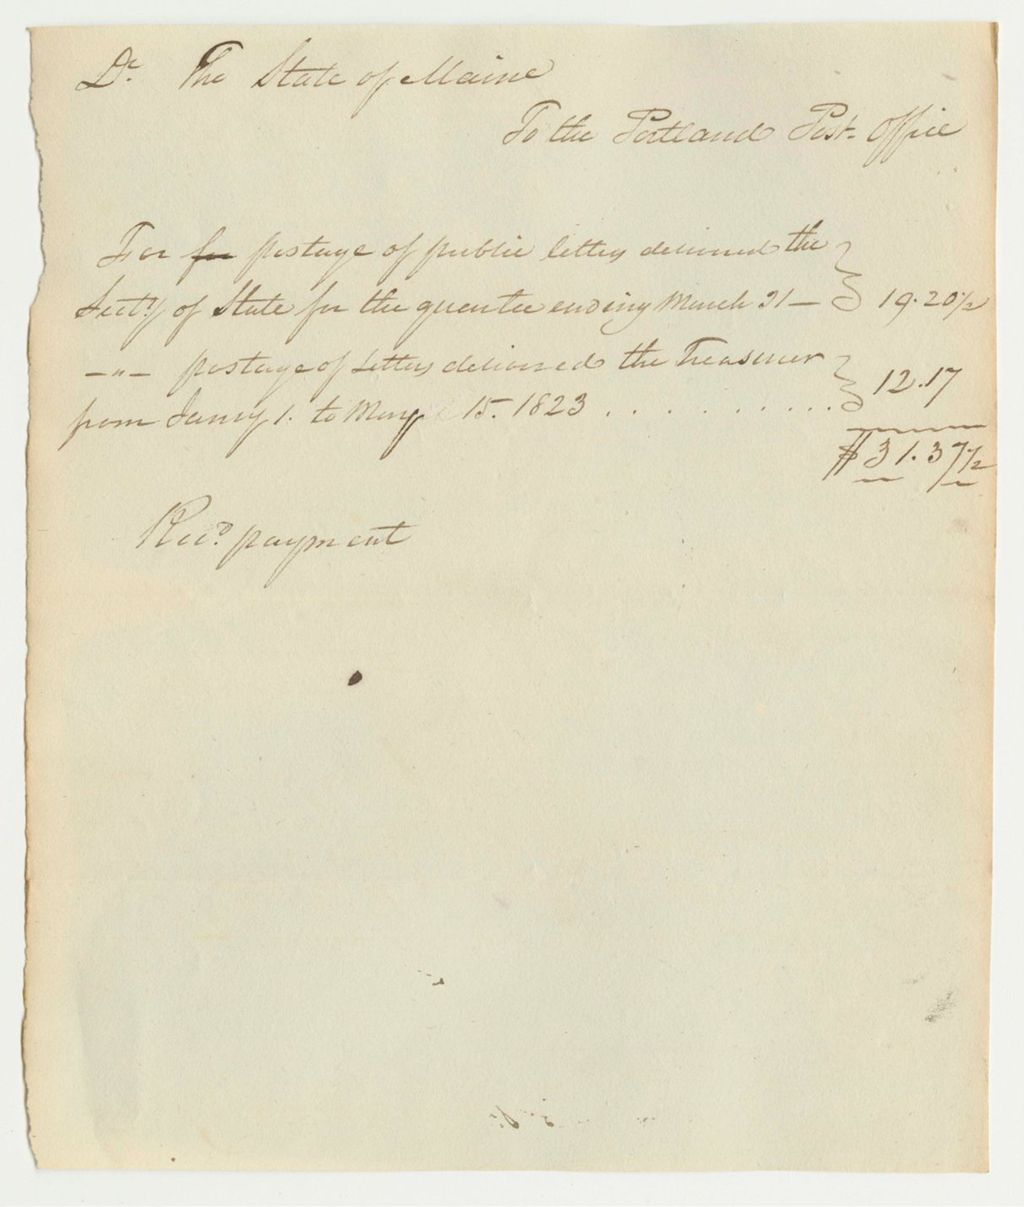 Dr. The State of Maine
To the Portland Post-Office
For for postage of public letters delivered the
Secty of State for the quarter ending March 31 — 19.20½
—"— postage of Letters delivered the Treasurer
from Jany 1. to May 15. 1823 . . . . . . . . . . 12.17
$31.37½
Recd payment